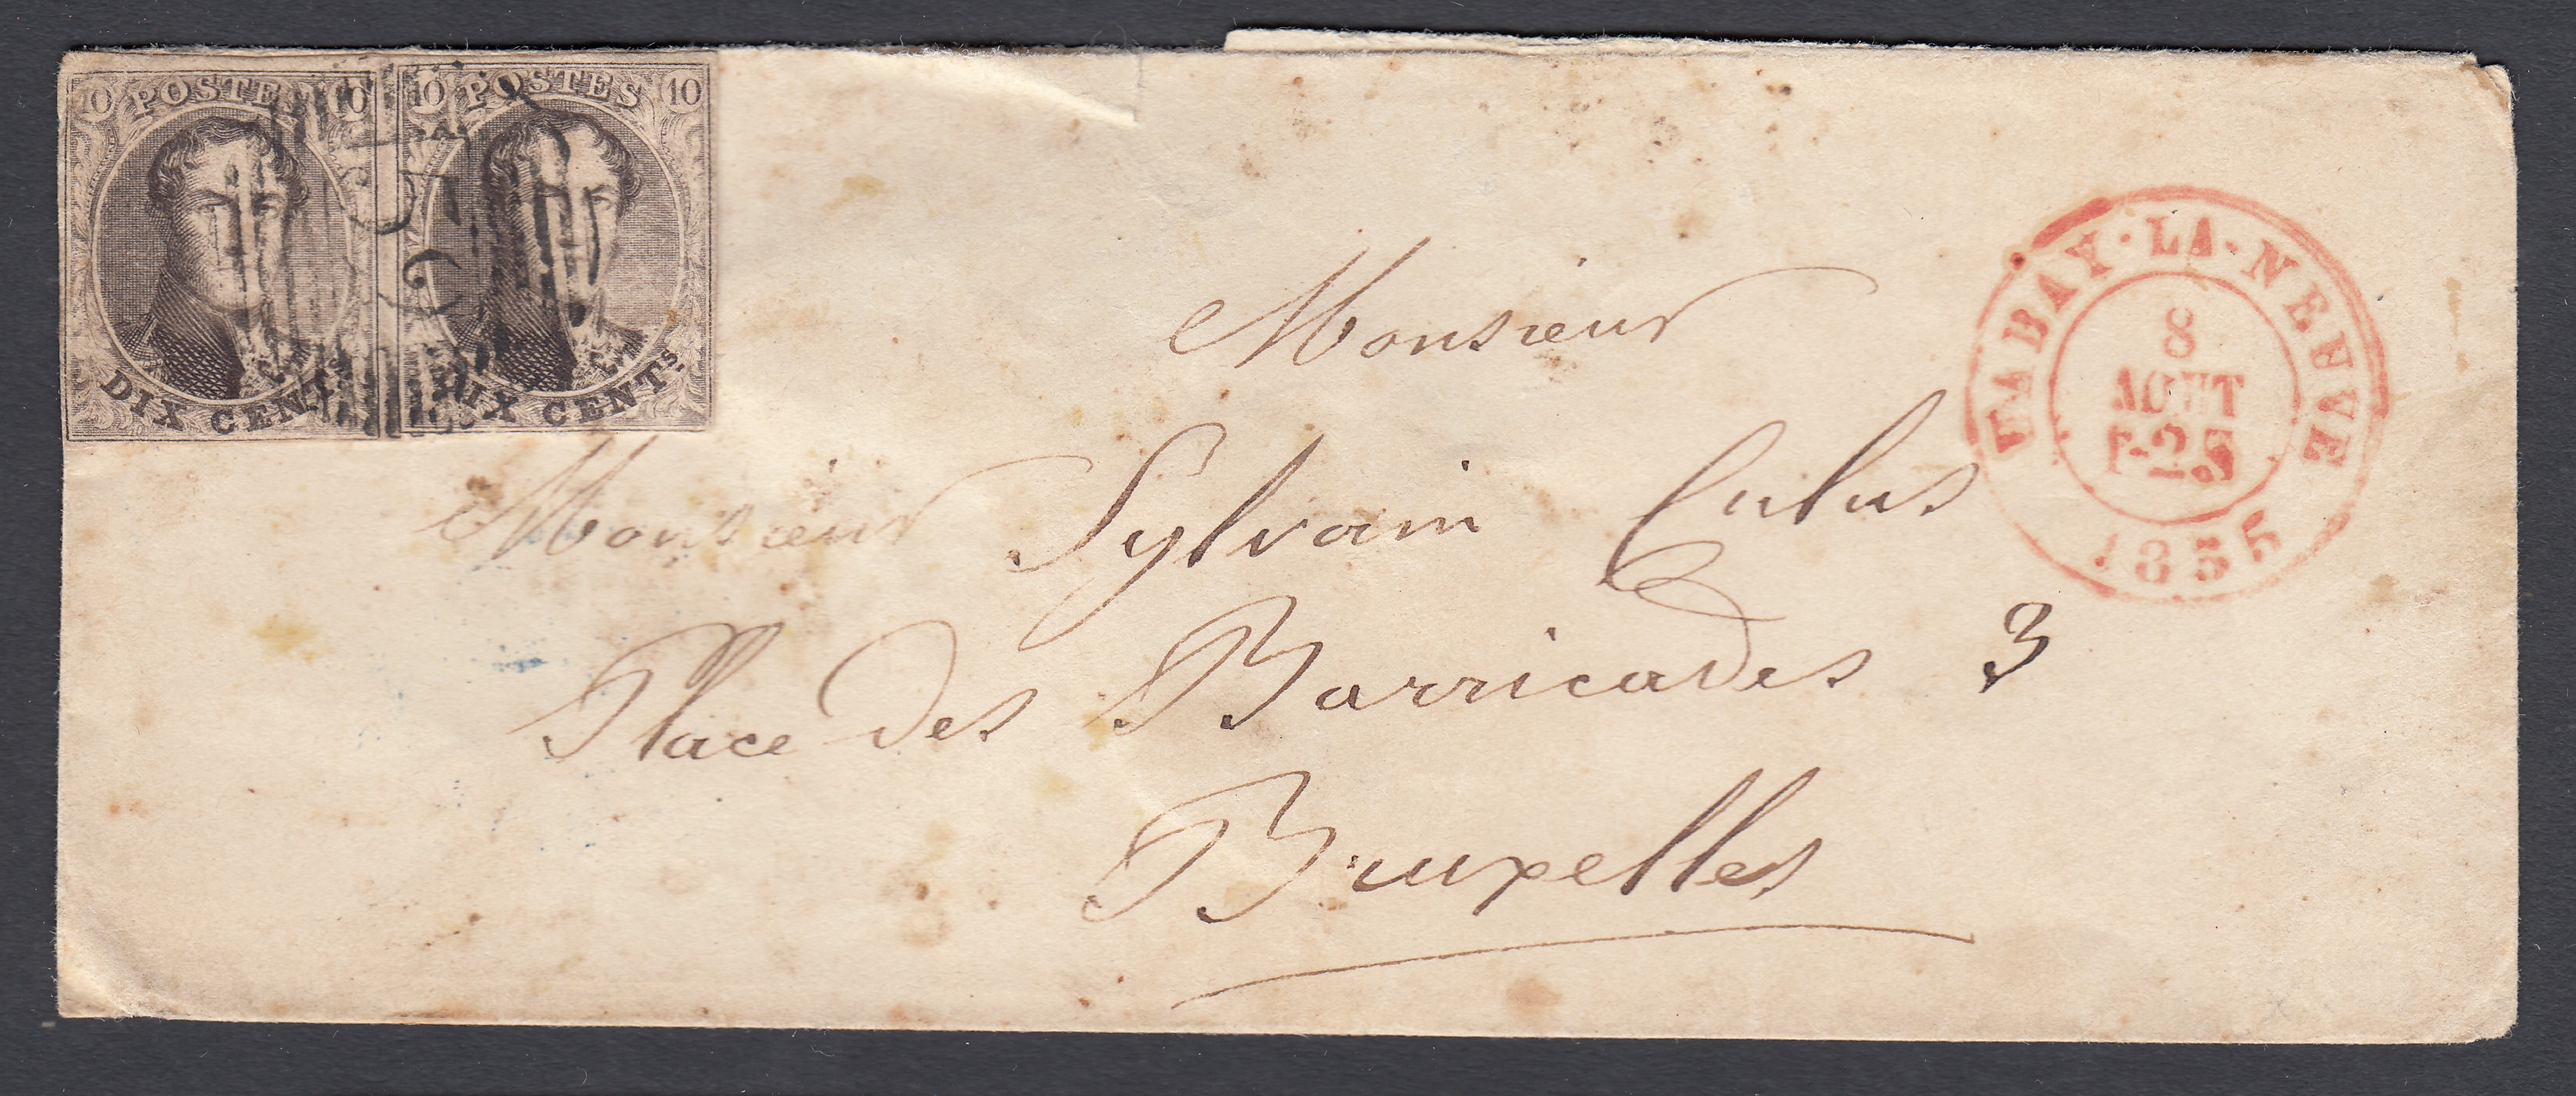 10 POSTES 10
DIX CENTS
10 POSTES 10
DIX CENTS.
HABAY-LA-NEUVE
8
AOUT
1855
Monsieur
Monsieur Sylvain Culus
Place des Barricades 3
Bruxelles